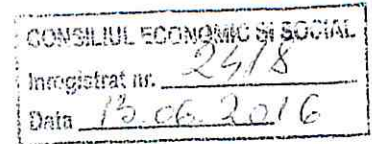 CONSILIUL ECONOMIC ŞI SOCIAL
Inregistrat nr. 2418
Data 13.06.2016